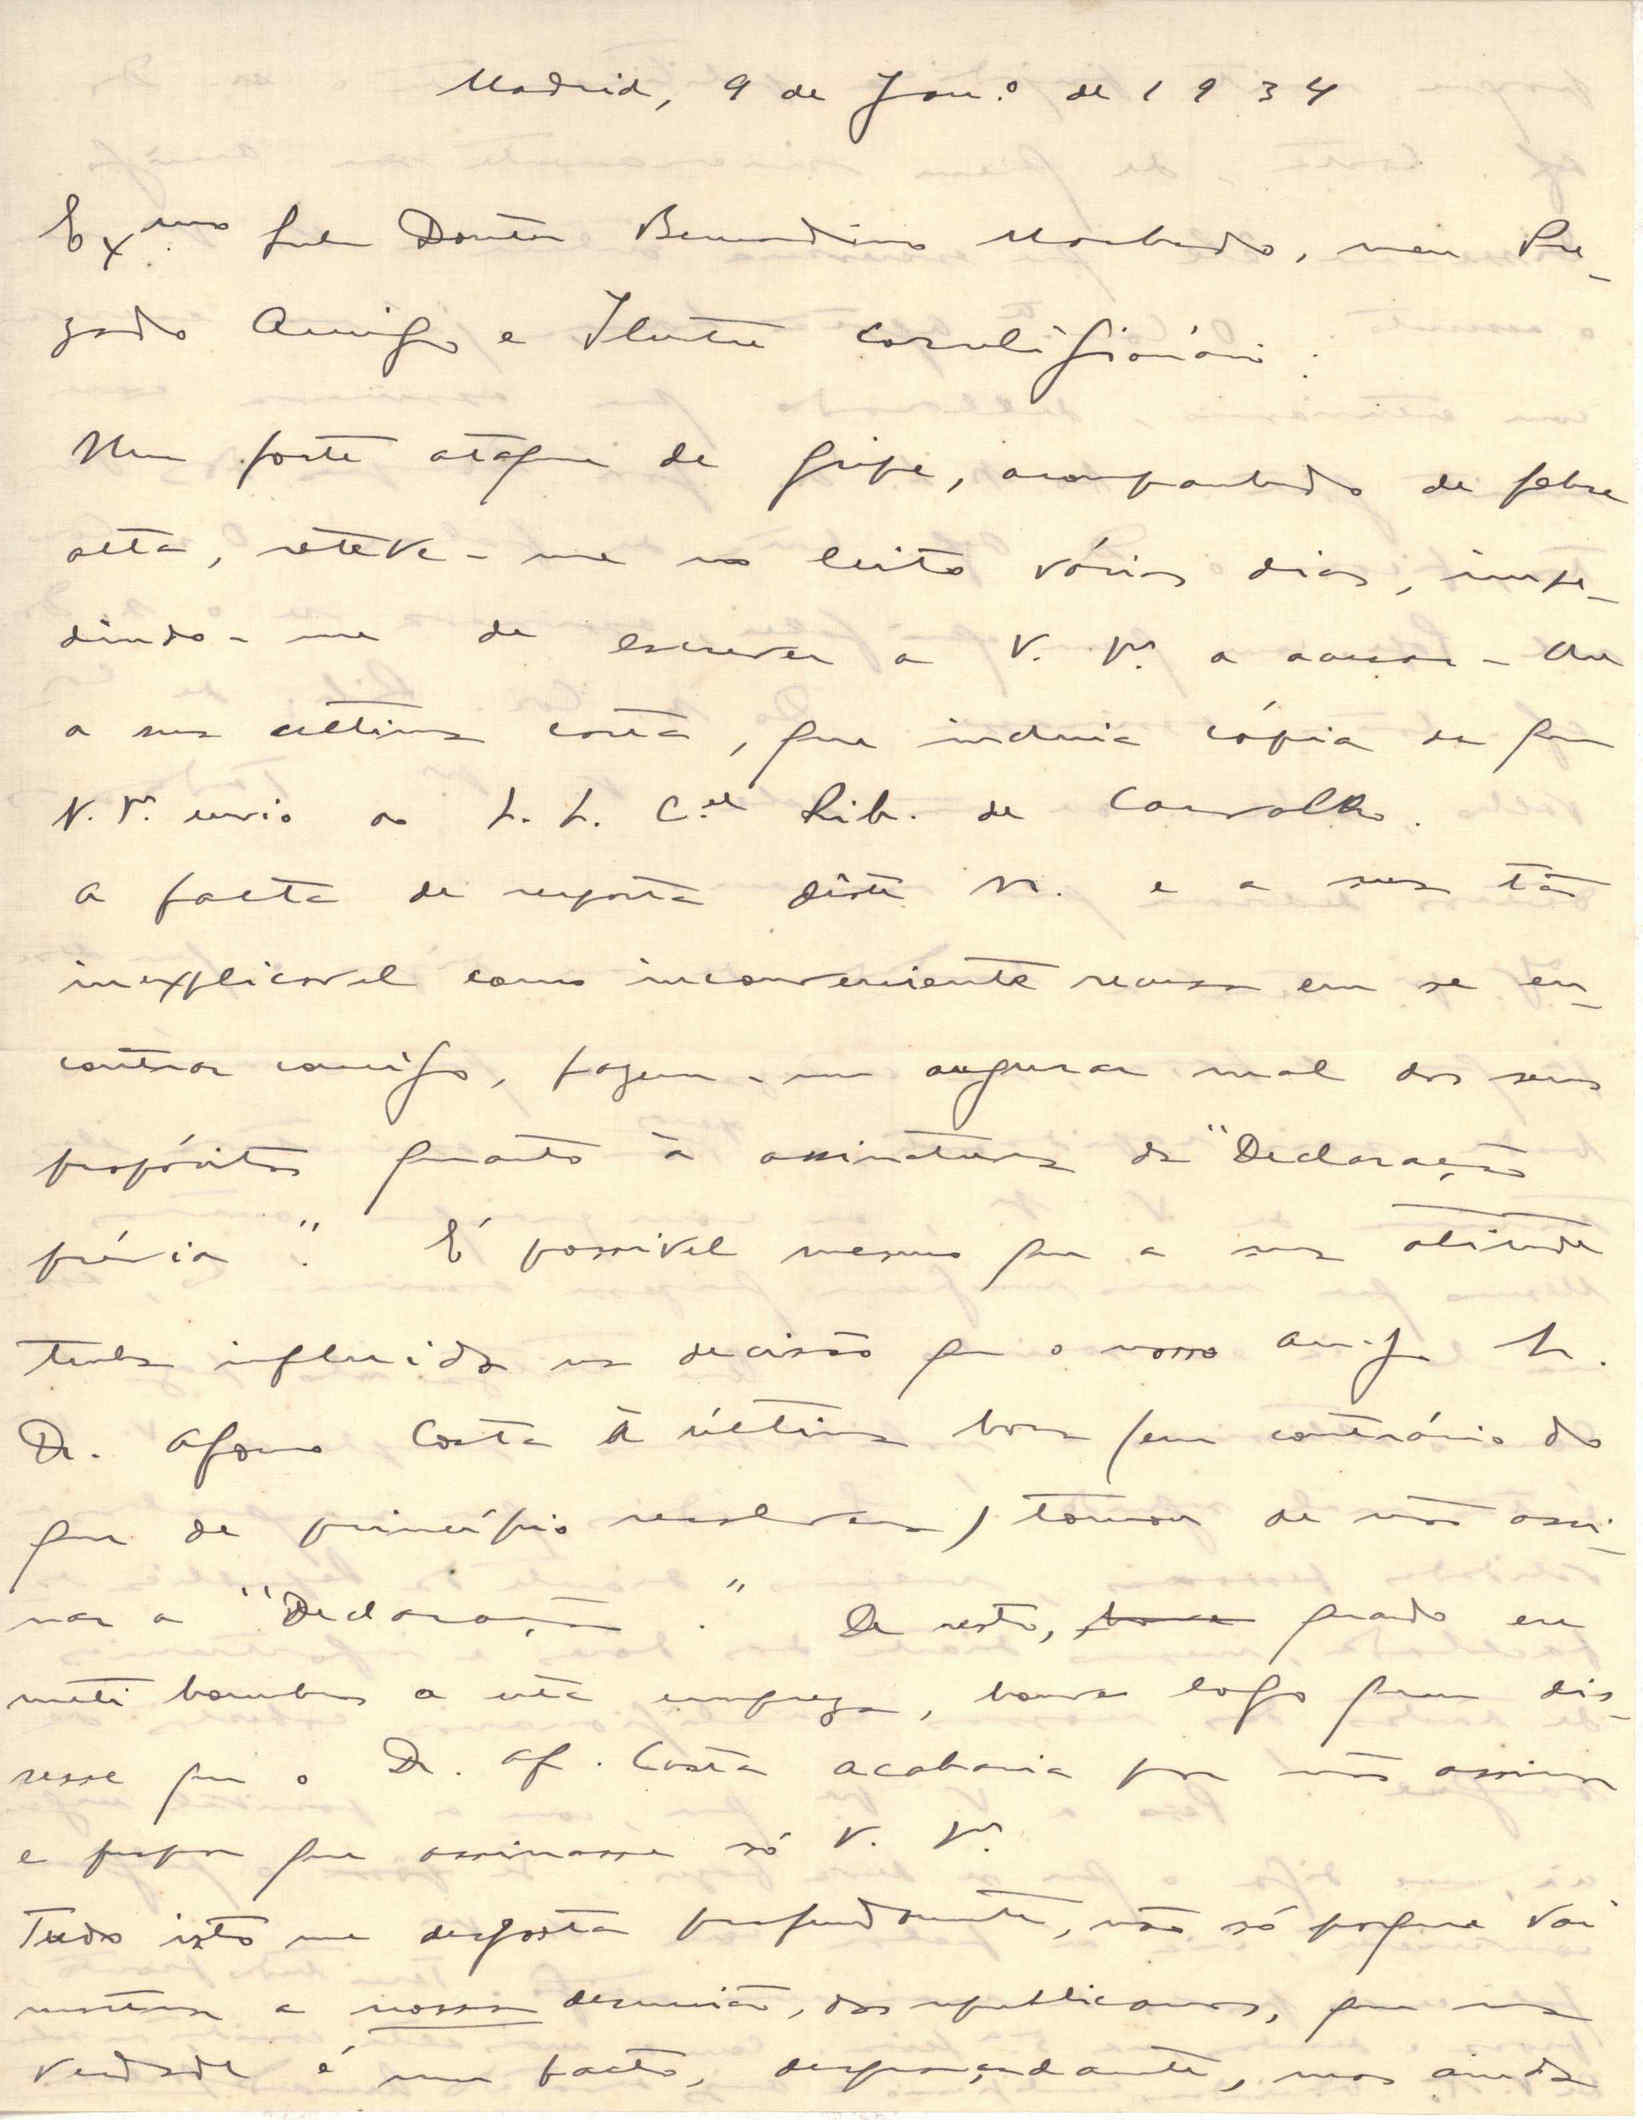 Madrid, 9 de Jan.º de 1934
Exmo Snr Doutor Bernardino Machado, meu Pre-
zado Amigo e Ilustre Correligionário:
Um forte ataque de gripe, acompanhado de febre
alta, reteve-me no leito vários dias, impe-
dindo-me de escrever a V. Exª a acusar-lhe
a sua última carta, que incluia cópia da que
V. Exª enviou ao S. C.el Rib. de Carvalho.
A falta de resposta dêste Sr. e a sua tão
inexplicavel como inconveniente recusa em se en-
contrar comigo, fazem-me augurar mal dos seus
propósitos quanto à assinatura da "Declaração
prévia". É possivel mesmo que a sua atitude
tenha influido na decisão que o nosso am.go Sr.
Dr. Afonso Costa à última hora (em contrário do
que de princípio resolvera) tomou de não assi-
nar a "Declaração". De resto, quando eu
meti hombros a esta empreza, houve logo quem dis-
sesse que o Dr. Af. Costa acabaria por não assinar
e propor que assinasse só V. Exª
Tudo isto me desgosta profundamente, não só porque vai
mostrar a nossa desunião, dos republicanos, que na
verdade é um facto, desgraçadamente, mas ainda